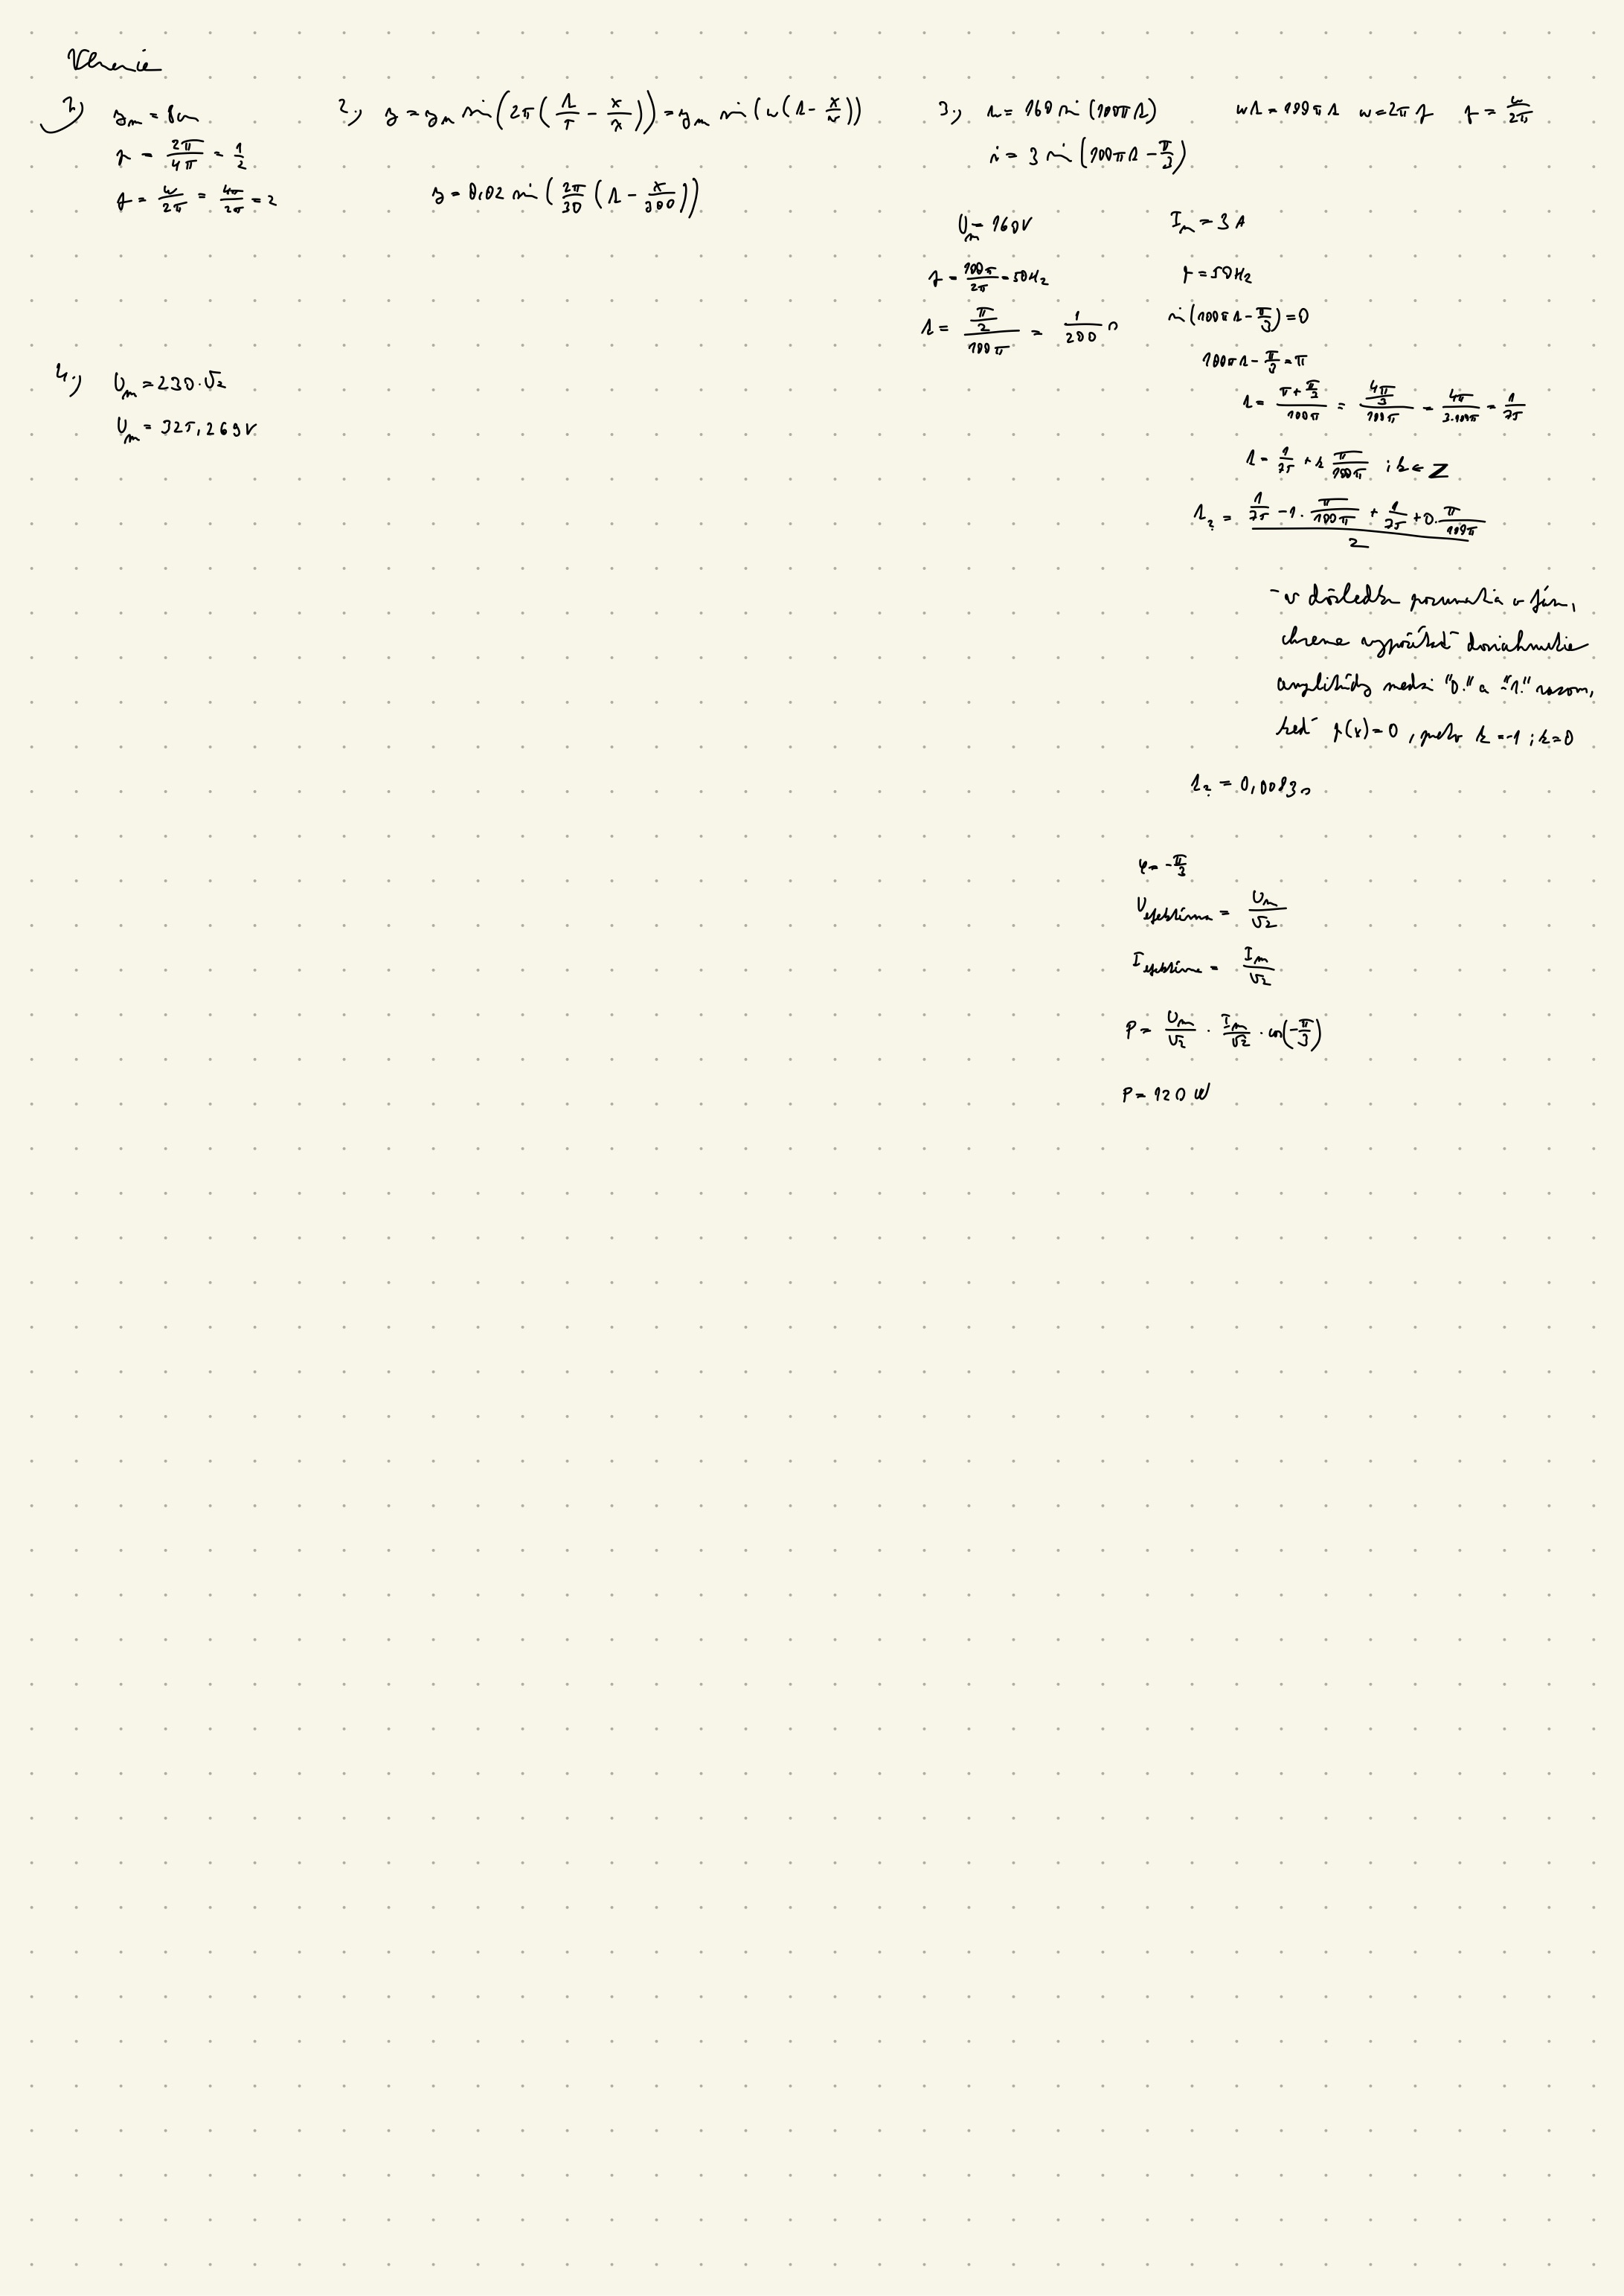 Vlnenie
1.) yₘ = 8cm
T = 2π/4π = 1/2
f = ω/2π = 4π/2π = 2
2.) y = yₘ sin(2π(t/T - x/λ)) = yₘ sin(ω(t - x/v))
y = 0,02 sin(2π/30 (t - x/300))
3.) u = 160 sin(100πt)
ωt = 100πt ω = 2πf f = ω/2π
i = 3 sin(100πt - π/3)
Uₘ = 160V
f = 100π/2π = 50Hz
t = (π/2)/100π = 1/200 s
Iₘ = 3A
f = 50Hz
sin(100πt - π/3) = 0
100πt - π/3 = π
t = (π + π/3)/100π = (4π/3)/100π = 4π/3.100π = 1/75
t = 1/75 + k π/100π ; k ∈ Z
t₂ = (1/75 - 1 . π/100π + 1/75 + 0 . π/100π)/2
- v dôsledku posunutia v fáze,
chceme vypočítať dosiahnutie
amplitúdy medzi "0." a "-1." razom,
keď f(x) = 0, preto k = -1 ; k = 0
t₂ = 0,0083s
φ = -π/3
U efektívna = Uₘ/√2
I efektívne = Iₘ/√2
P = Uₘ/√2 . Iₘ/√2 . cos(-π/3)
P = 120 W
4.) Uₘ = 230.√2
Uₘ = 325,269V